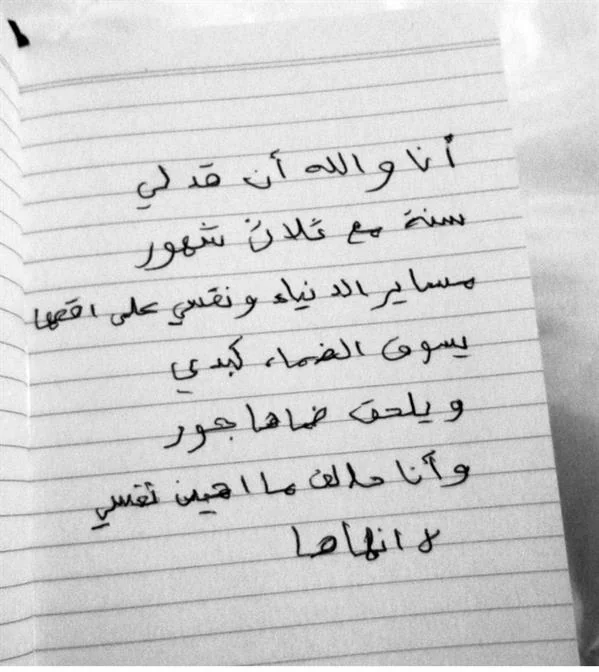 أنا والله أن قد لي
سنة مع ثلاث شهور
مساير الدنياء ونفسي على اقصها
يسوق الضماء كبدي
ويلحق ضماها جور
وأنا حالف ما اهين نفسي
لا انهاها